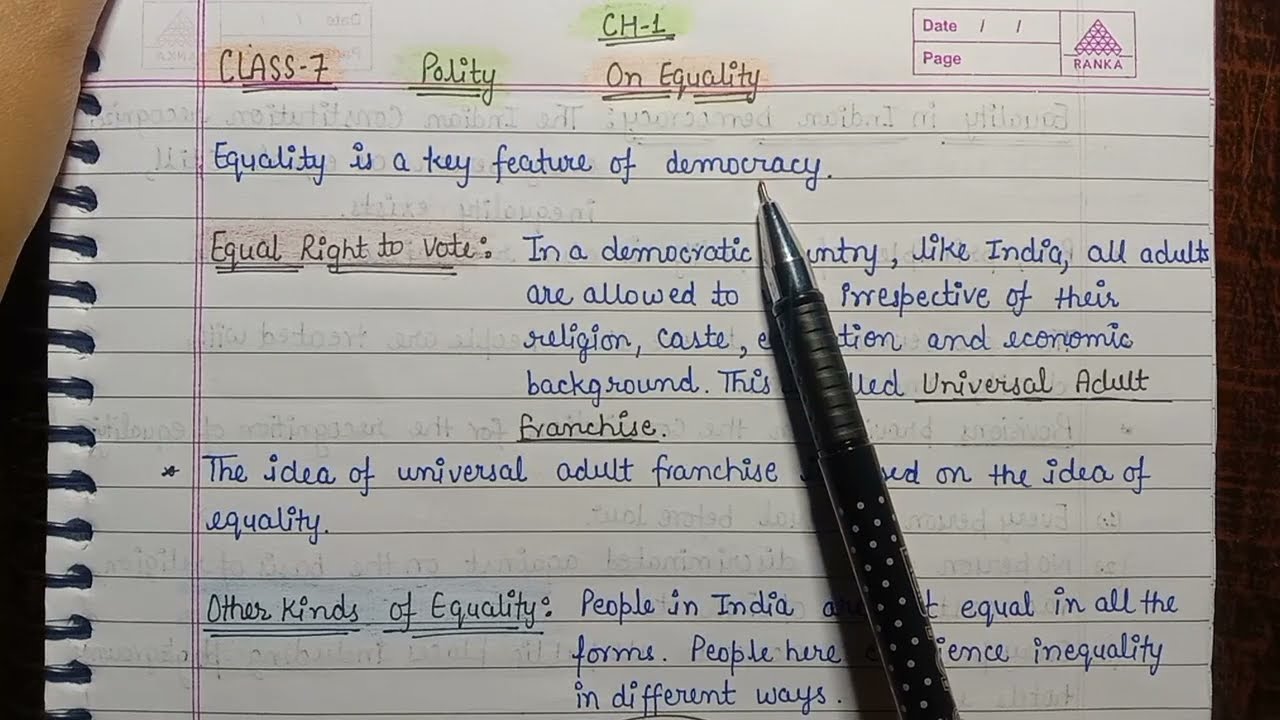 CH-1
Date / /
Page
RANKA
CLASS-7 Polity On Equality
Equality is a key feature of democracy.
Equal Right to Vote: In a democratic untry, like India, all adults
are allowed to irrespective of their
religion, caste, e tion and economic
background. This lled Universal Adult
Franchise.
* The idea of universal adult franchise sed on the idea of
equality.
Other Kinds of Equality: People in India are t equal in all the
forms. People here ience inequality
in different ways.